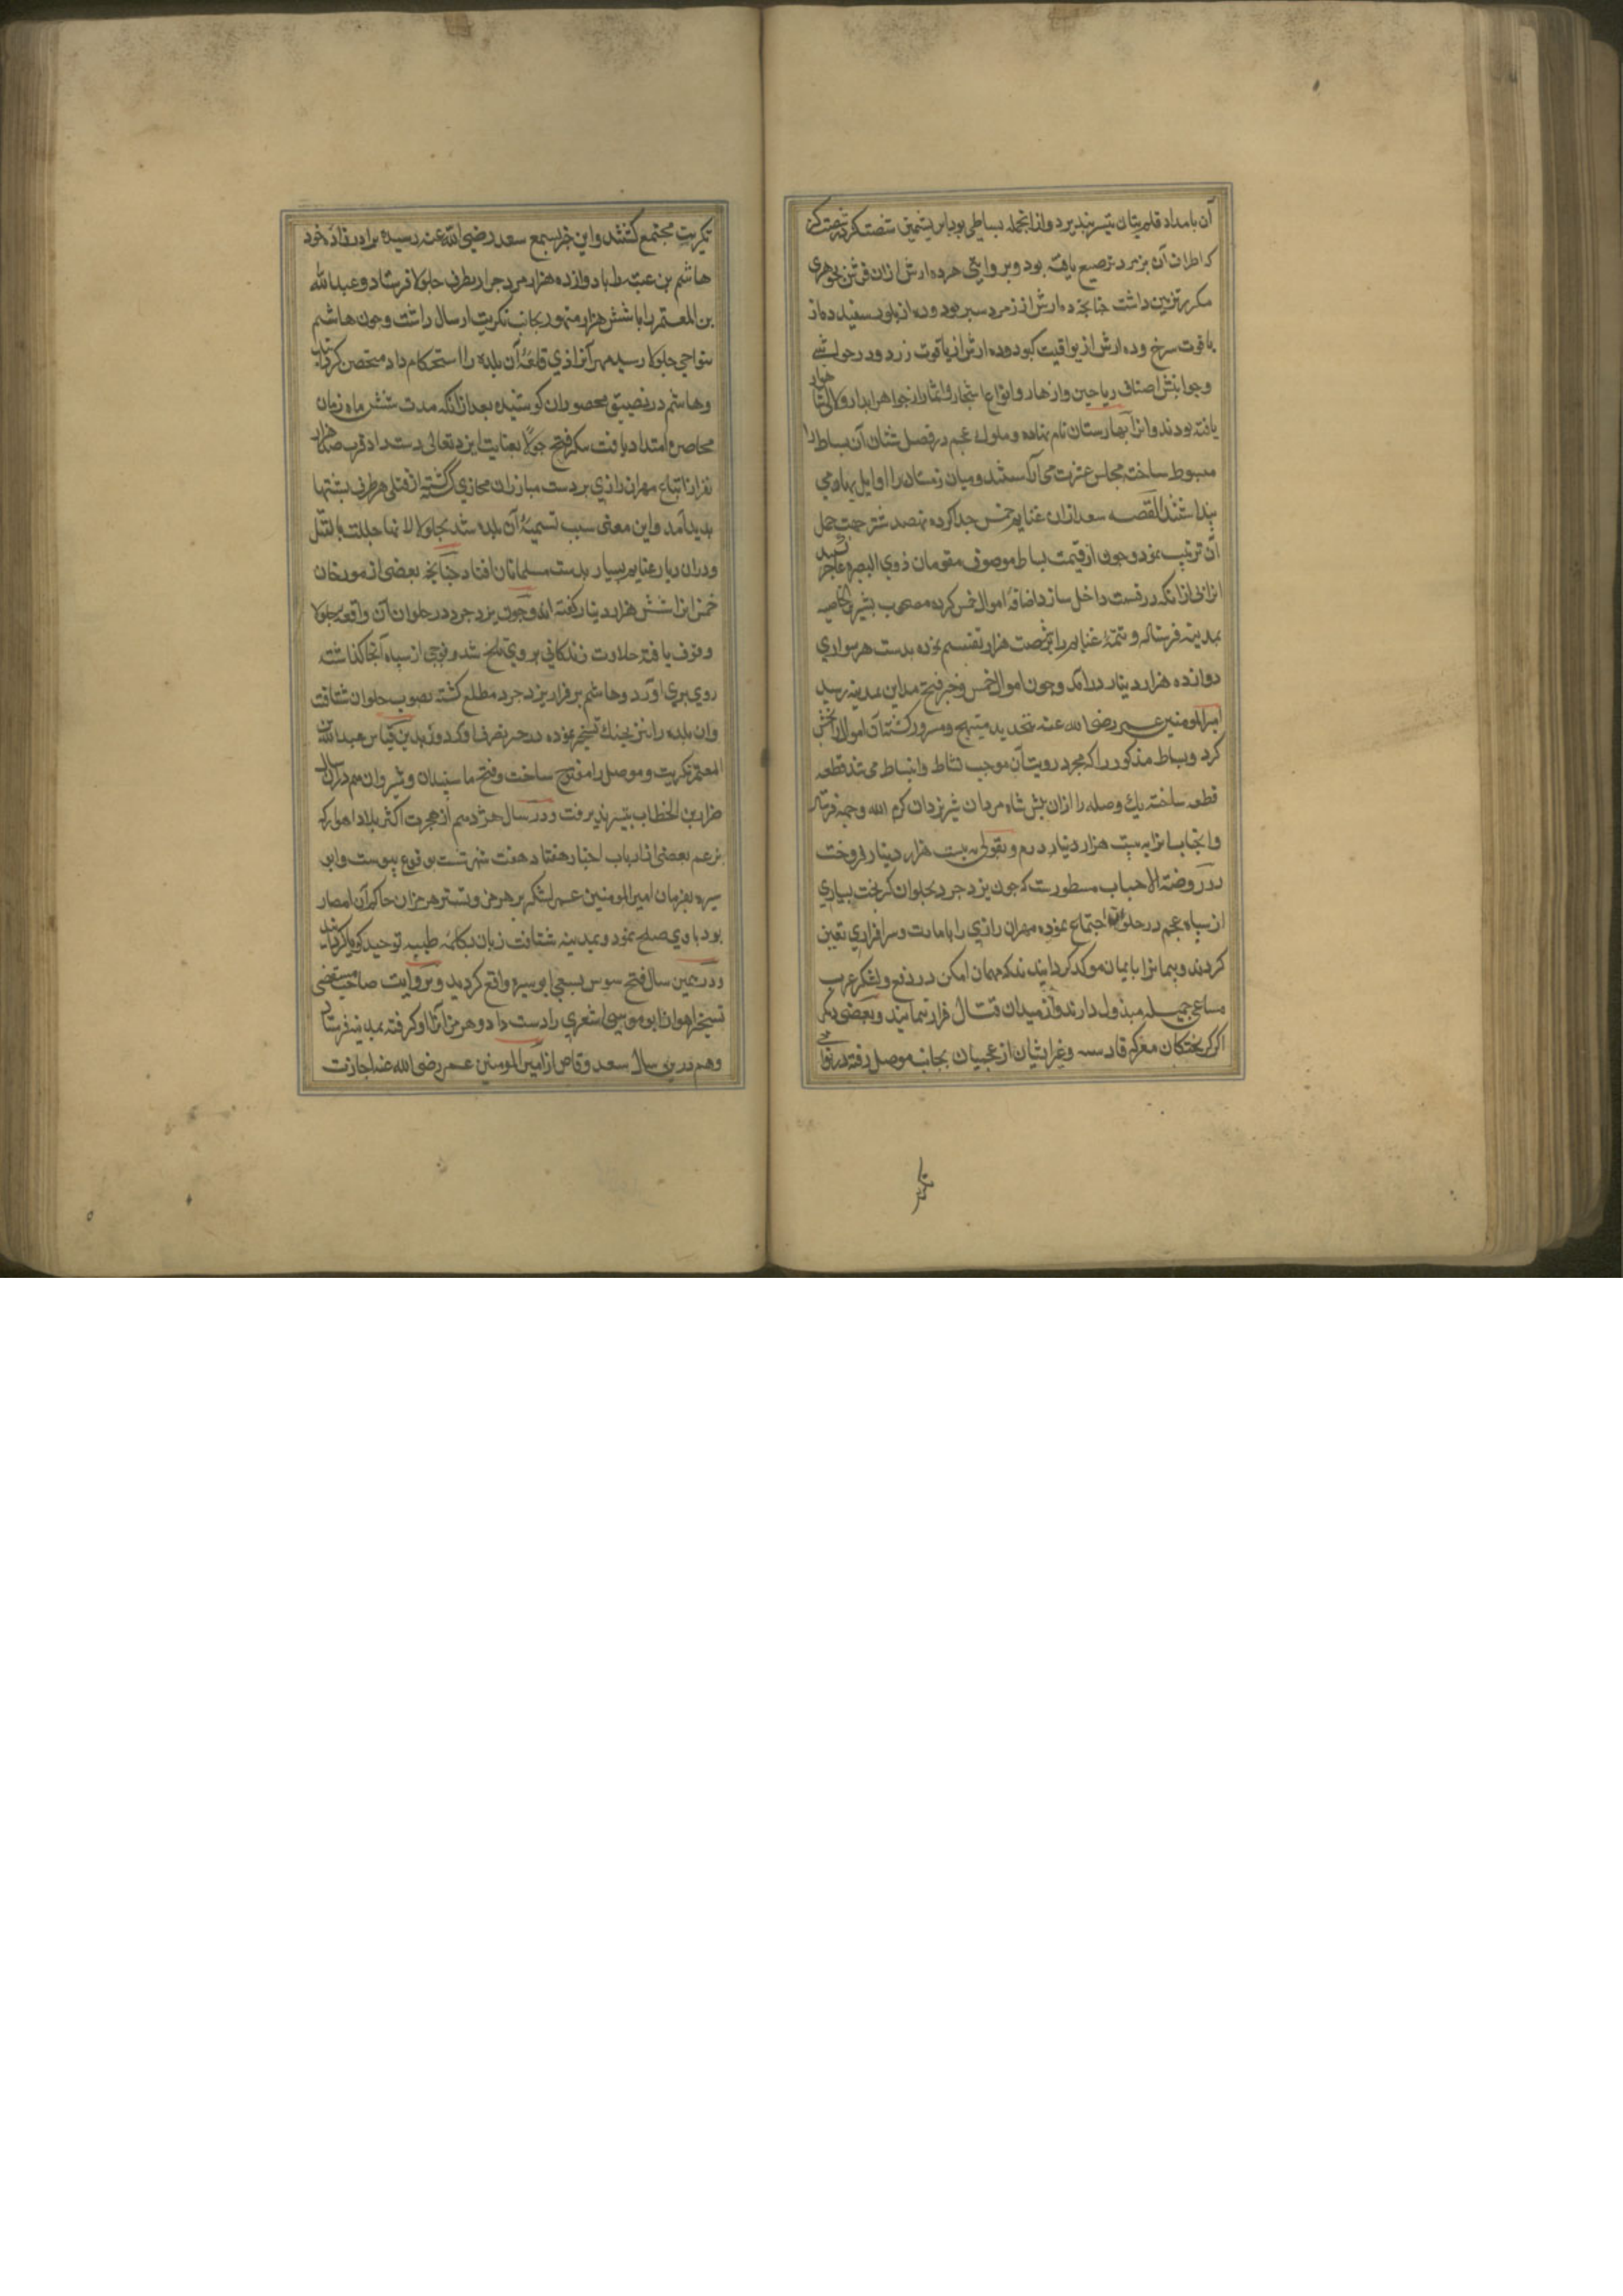 آن بامداد قلم بتان تیسر نپذیرد و از انجمله بساطی بود ابریشمین شصت کز در شصت کز
که اطراف آن بزبرجد ترصیع یافته بود و بروایتی هر ده ارش ازان فرش بجوهری
مکرر تزیین داشت چنانچه ده ارش از زمرد سبز بود و ده از بلور سفید و ده از
یاقوت سرخ و ده ارش از یواقیت کبود و ده ارش از یاقوت زرد و در حواشی
و جوانبش اصناف ریاحین و ازهار و انواع اشجار و اثمار از جواهر ابدار و لالی
یافته بودند و انرا بهارستان نام نهاده و ملوک عجم در فصل شتا آن بساط را
مبسوط ساخته مجلس عشرت می آراستند و میان زمستان را اوایل بهار می
پنداشتند القصه سعد ازان غنایم خمس جدا کرده نهصد شتر جهت حمل
آن ترتیب نمود و چون از قیمت بساط موصوف مقومان ذوی البصر عاجز
انرا بی ازانکه در قسمت داخل سازد اضافه اموال خمس کرده مصحوب بشیر بن الخاصیه
بمدینه فرستاد و تتمه غنایم را بر شصت هزار تقسیم نموده بدست هر سواری
دوازده هزار دینار درامد و چون اموال خمس و خبر فتح مداین بمدینه رسید
امیرالمومنین عمر رضی الله عنه مبتهج و مسرور کشته آن اموال را بخش
کرد و بساط مذکور را که مجرد رویت آن موجب نشاط و انبساط می شد قطعه
قطعه ساخته یک وصله را ازان پیش شاه مردان شیر یزدان کرم الله وجهه فرستاد
و انجناب انرا به بیست هزار درم و بقولی به بیست هزار دینار فروخت
در روضة الاحباب مسطورست که چون یزدجرد بحلوان کریخت بسیاری
از سپاه عجم در جلولا اجتماع نموده مهران رازی را بامارت و سرافرازی تعین
کردند و پیمانرا بایمان موکد کردانیدند که مهما امکن در دفع لشکر عرب
مساعی جمیله مبذول دارند و از میدان قتال فرار ننمایند و بعضی دیکر
از کریختکان معرکه قادسیه و غیر ایشان از عجمیان بجانب موصل رفته در نواحی
تکریت
تکریت مجتمع کشتند و این خبر بسمع سعد رضی الله عنه رسیده برادرزاده خود
هاشم بن عتبه را با دوازده هزار مرد جرار بطرف جلولا فرستاد و عبدالله
بن المعتمر را با شش هزار متهور بجانب تکریت ارسال داشت و چون هاشم
بنواحی جلولا رسید مهران رازی قلعه آن بلده را استحکام داد متحصن کردید
و هاشم در تضییق محصوران کوشیده بعد ازانکه مدت شش ماه زمان
محاصره امتداد یافت پیکر فتح جلولا بعنایت ایزد تعالی دست داد قرب صد هزار
نفر از اتباع مهران رازی بر دست مبارزان حجازی کشته از قتلی هر طرف پشتها
پدید آمد و این معنی سبب تسمیه آن بلده شد بجلولا لانها جللت بالقتل
و دران دیار غنایم بسیار بدست مسلمانان افتاد چنانچه بعضی از مورخان
خمس انرا شش هزار دینار کفته اند و چون یزدجرد در حلوان آن واقعه جلولا
وقوف یافت حلاوت زندکانی بر وی تلخ شد و فوجی از سپاه آنجا کذاشته
روی بری آورد و هاشم بر فرار یزدجرد مطلع کشته بصوب حلوان شتافت
و ان بلده را نیز بجنک تسخیر نموده در حیز تصرف اورد و عبدالله بن
المعتمر تکریت و موصل را مفتوح ساخت و فتح ماسبذان و شیروان هم دران سال
ضرار بن الخطاب تیسر پذیرفت و در سال هژدهم از هجرت اکثر بلاد اهواز که
بزعم بعضی از ارباب اخبار هفتاد و هفت شهرست بوقوع پیوست و ابو
سبره بفرمان امیرالمومنین عمر لشکر بر هرمز و تستر هرمزان حاکم آن امصار
بود با وی صلح نمود و بمدینه شتافت زبان بکلمه طیبه توحید کویا کردانید
و در همین سال فتح سوس بسعی ابو سبره واقع کردید و بروایت صاحب مستقصی
تسخیر اهواز ابو موسی اشعری را دست داد و هرمزانرا او کرفته بمدینه فرستاد
و هم درین سال سعد وقاص از امیرالمومنین عمر رضی الله عنه اجازت